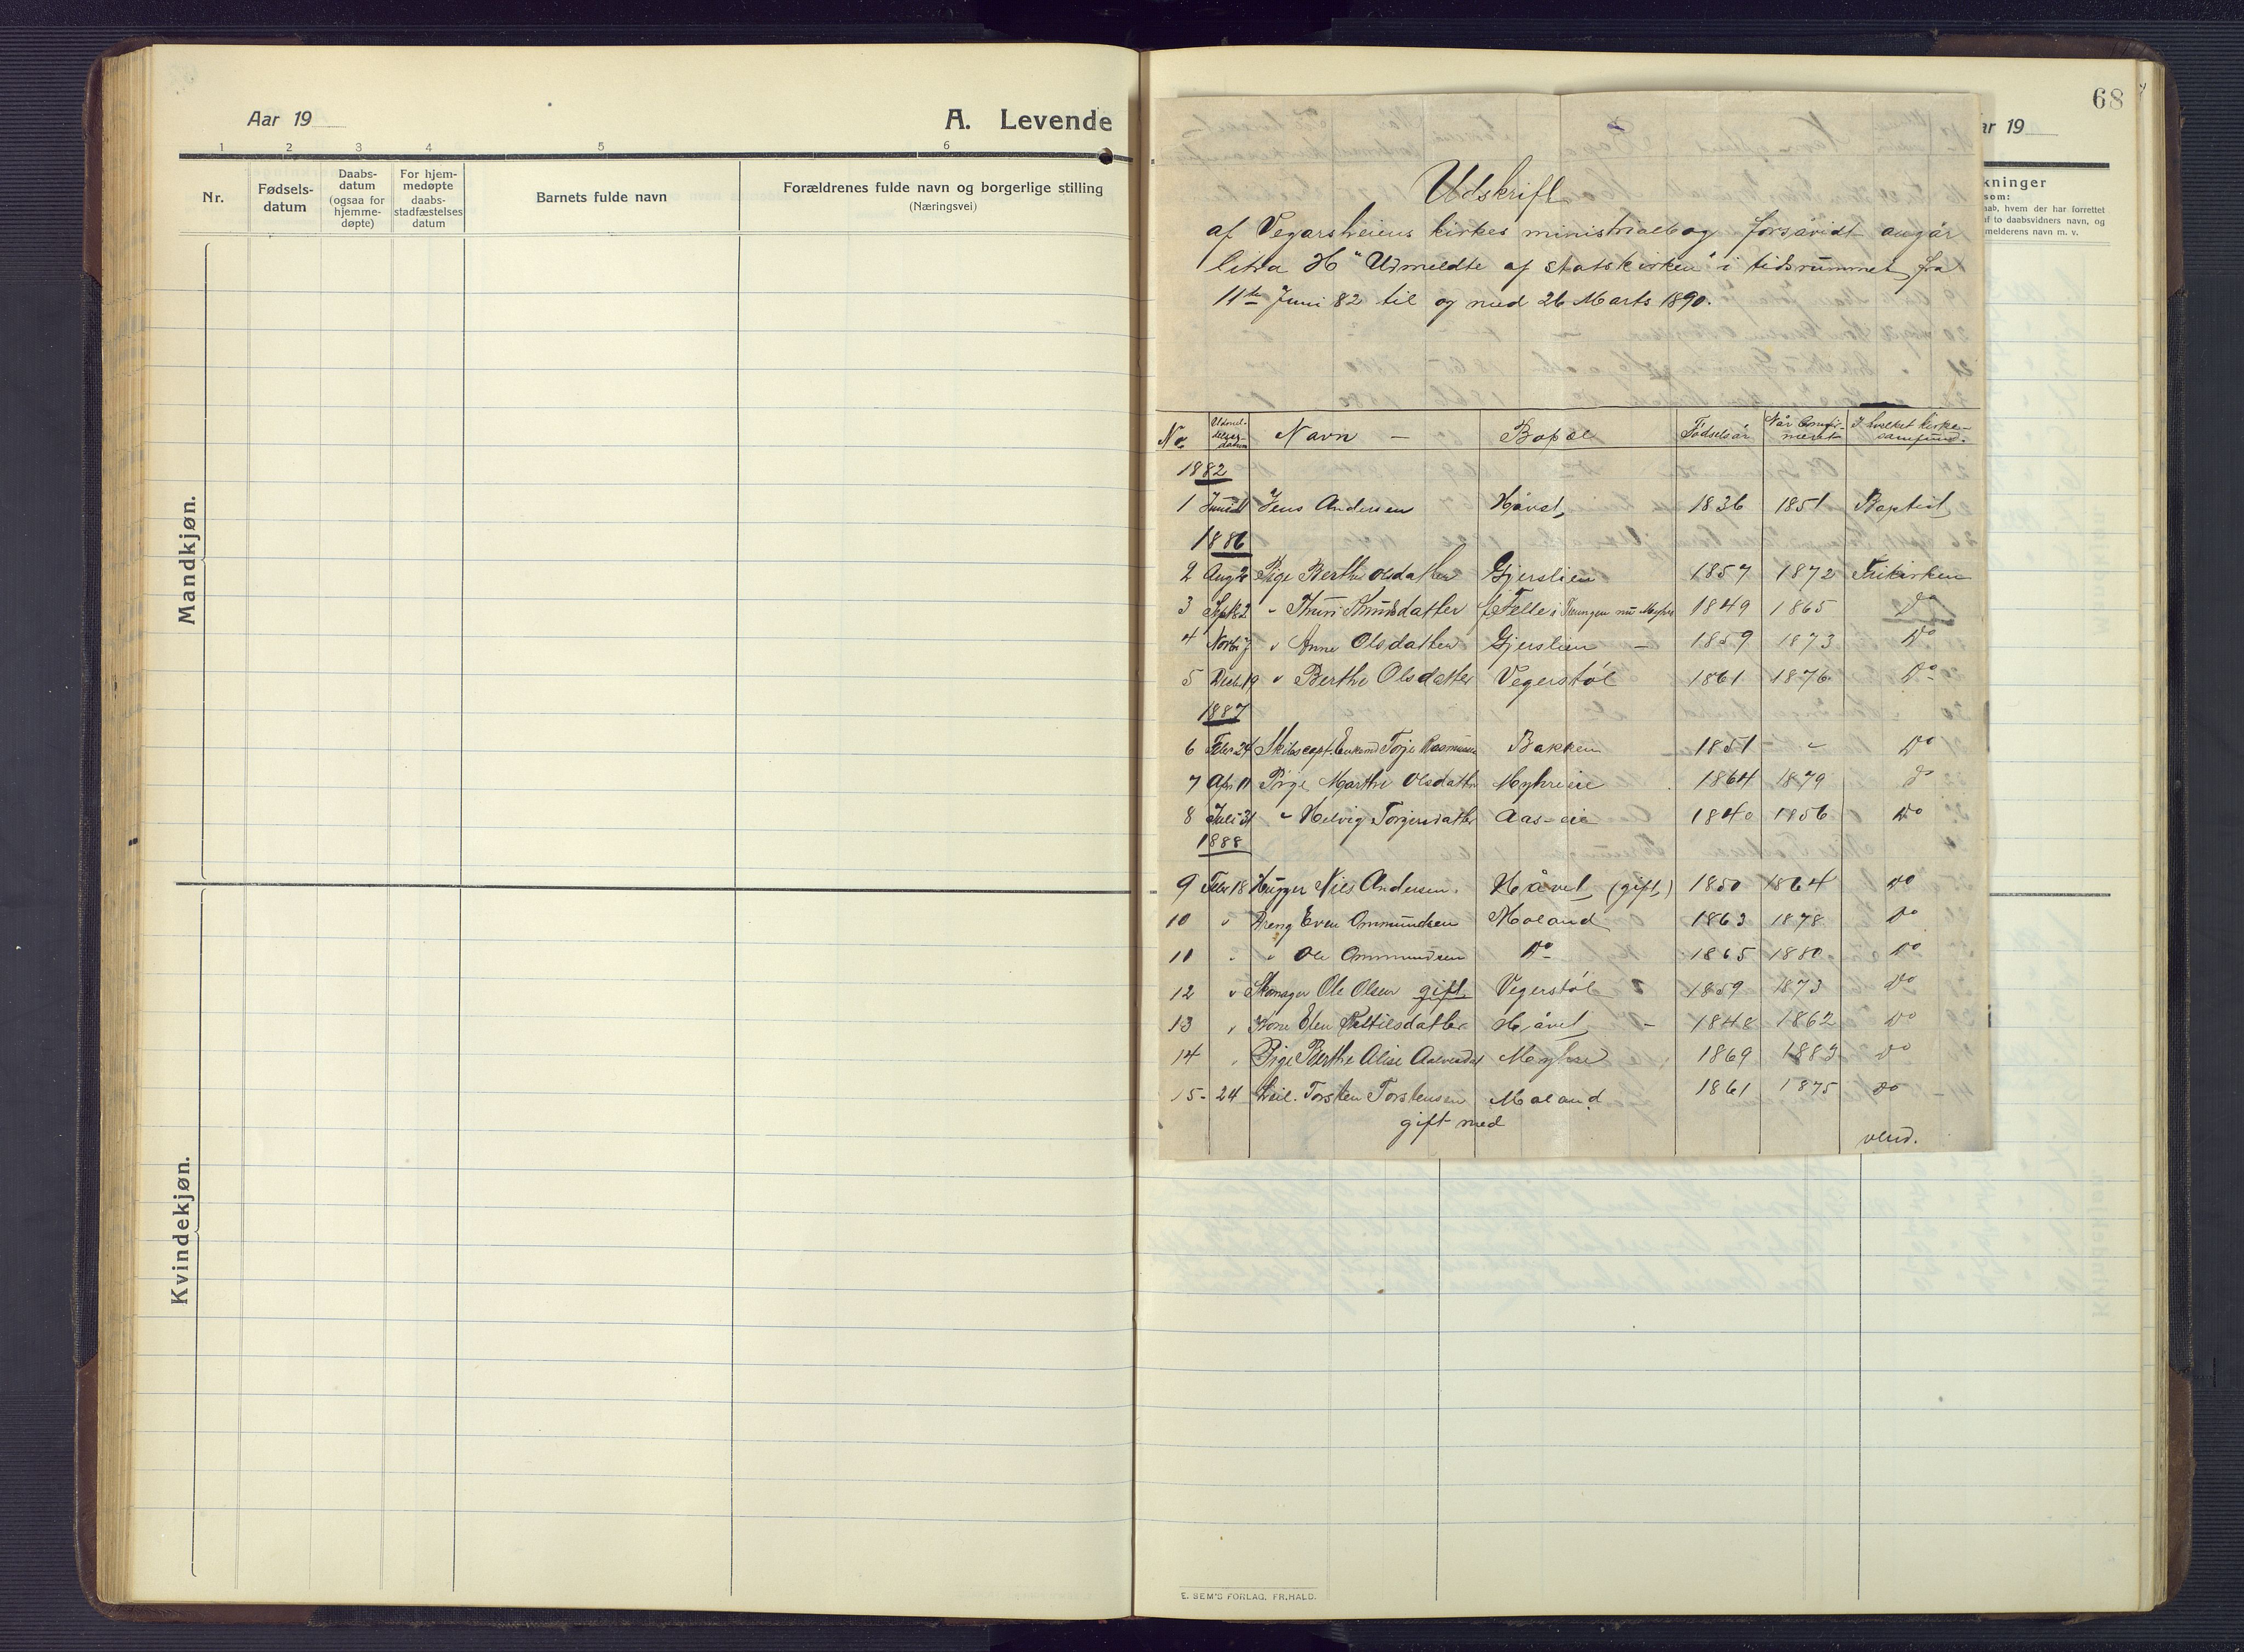 Aar 19
A. Levende
1 2 3 4 5 6
Nr.
Fødsels-
datum
Daabs-
datum
(ogsaa for
hjemme-
døpte)
For hjem-
medøpte
daabs-
stadfæstelses
datum
Barnets fulde navn
Forældrenes fulde navn og borgerlige stilling
(Næringsvei)
Mandkjøn.
Kvindekjøn.
68
ar 19
kninger
som:
aab, hvem der har forrettet
af to daabsvidners navn, og
melderens navn m. v.
Udskrift
af Vegarsheiens kirkes ministrialbog forsåvidt angår
litra H "Udmeldte af statskirken" i tidsrummet fra
11te Juni 82 til og med 26 Marts 1890.
No. Udmel-delses-datum Navn – Bopæl Fødselsår Når Confir-meret I hvilket kirke-samfund.
1882
1 Juni 11 Jens Andersen Håvet, 1836 1851 Baptist
1886
2 Aug 2 Pige Berthe Olsdatter Gjerslien 1857 1872 Frikirken
3 Sept 2 " Knudsdatter Felle i nu Myhre 1849 1865 Do
4 Novbr 7 " Anne Olsdatter Gjerslien – 1859 1873 Do
5 Decb. 19 " Berthe Olsdatter Vegerstøl 1861 1876 Do
1887
6 Febr 24 Skibscapt. Enkemd Torje Rasmusen Bakken 1851 " Do
7 Apr 11 Pige Marthe Olsdatter Myhreeie 1864 1879 Do
8 Juli 31 " Helvig Torgersdatter Aas-eie 1840 1856 Do
1888
9 Febr 18 Hugger Nils Andersen. Håvet, (gift,) 1850 1864 Do
10 " Dreng Even Ommundsen Moland 1863 1878 Do
11 " " Ole Ommundsen Do 1865 1880 Do
12 " Skomager Ole Olsen gift Vegerstøl 1859 1873 Do
13 " Kone Elen Kettilsdatter Håvet, – 1848 1862 Do
14 " Pige Berthe Alise Myhre 1869 1883 Do
15 - 24 Torsten Torstensen Moland 1861 1875 Do
gift med
vend.
E. SEM'S FORLAG, FR.HALD.